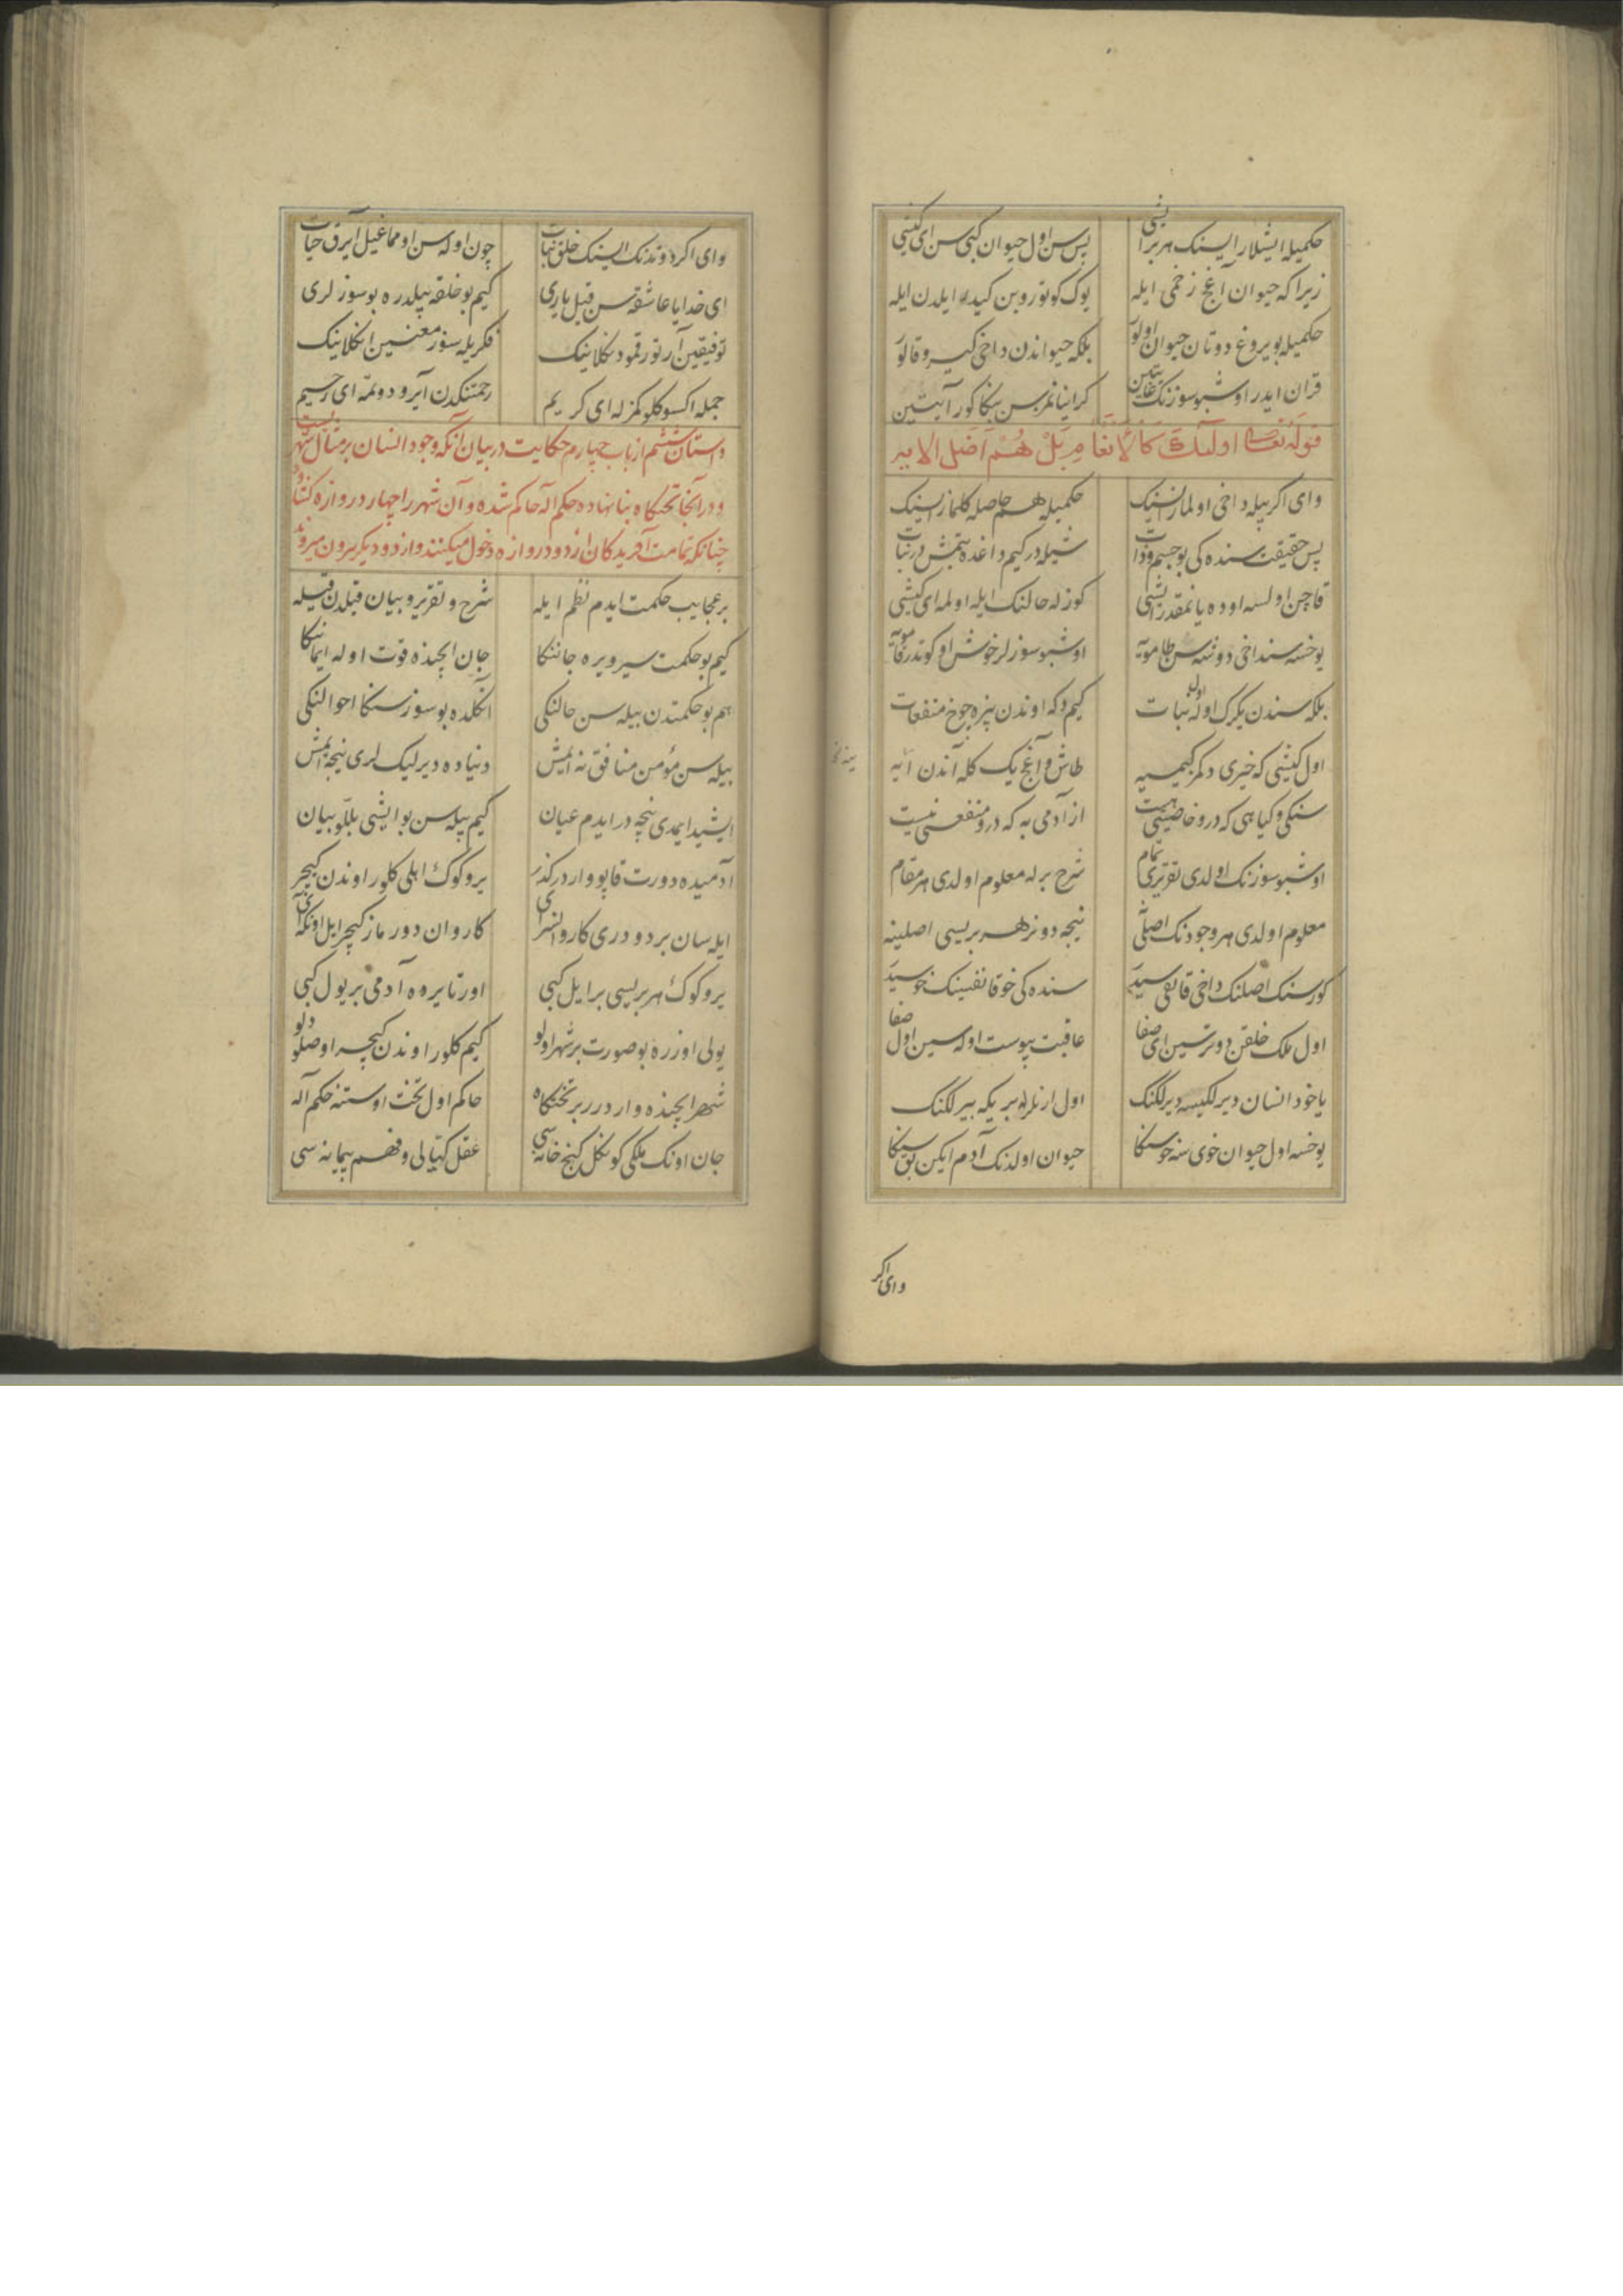 حکمیله ایشلار ایسنک هر بر ایشی پس سن اول حیوان کبی سن ای کیشی
زیرا که حیوان آغج زخمی ایله یوک کوتوروبن کیدر ایلدن ایله
حکمیله بویروغ دوتان حیوان اولور بلکه حیواندن داخی کیرو قالور
قران ایدر اوشبو سوزنک غایتین کر اینانمزسن بنکا کور آیتین
قوله تعالی اولئک کالانعام بل هم اضل الایه
وای اکر بیله داخی اولمازسنک حکمیله هم حاصله کلمازسنک
پس حقیقت سنده کی بو جسم و ذات شیله در کیم داغده بتمش در نبات
قاچن اولسه اوده یانمقدر ایشی کوزله حالنک ایله اولمه ای کیشی
یوخسه سنداخی دونسه سن طامویه اوشبو سوزلر خوش اوکوتدر قامویه
بلکه سندن یکرک اوله اول نبات کیم وکه اوندن بزه چوخ منفعات
اول کیشی که خیری دکمز کیمسیه طاش و آغج یک کله آندن آیه
سنکی و کیاهی که درو خاصیتی هست از آدمی به که درو منفعتی نیست
اوشبو سوزنک اولدی تقریری تمام شرح برله معلوم اولدی هر مقام
معلوم اولدی هر وجودنک اصلی نه نیجه دونر هر بریسی اصلینه
کورسنک اصلنک داخی قانقی سیدر سنده کی خو قانفیسنک خوسیدر
اول ملک خلقن دوترسین ای صفا عاقبت پیوست اوله سین اول صفا
یا خود انسان دیرلکیسه دیرلکنک اول ارنلرله بریکه بیرلکنک
یوخسه اول حیوان خوی سنه خو سنکا حیوان اولدنک آدم ایکن یوق سنکا
وای اکر
وای اکر دوتدنک ایسنک خلق نبات چون اوله سن اومماغیل آیرق حیات
ای خدایا عاشقه سن قیل یاری کیم بو خلقه بیلدره بو سوزلری
توفیقین آرتور قمو دنکلانینک فکریله سوز معنیسین انکلاینک
جمله اکسوکلوکمزله ای کریم رحمتنکدن آیرو دوتمه ای رحیم
داستان ششم از باب چهارم حکایت در بیان آنکه وجود انسان بر مثال شهریست
و در آنجا تختکاه بنا نهاده حکم آله حاکم شده و آن شهر را چهار دروازه کشاد
چنانکه تمامت آفریدکان از دو دروازه دخول میکنند و از دو دیکر بیرون میروند
بر عجایب حکمت ایدم نظم ایله شرح و تقریر و بیان قیلدن قیله
کیم بو حکمت سیر ویره جاننکا جان ایچنده قوت اوله ایماننکا
هم بو حکمتدن بیله سن حالنکی انکلده بو سوز سنکا احوالنکی
بیله سن مؤمن منافق نه ایمش دنیاده دیرلیک لری نیجه ایمش
ایشید ایمدی نیجه در ایدم عیان کیم بیله سن بو ایشی بللو بیان
آدمیده دورت قاپو وار در کذر یر و کوک اهلی کلور اوندن کیچر
ایله سان بر دودری کاروانسرای کاروان دورماز کیچر ایل اونکه آی
یر و کوک هر بریسی بر ایل کبی اورتا یروه آدمی بر یول کبی
یولی اوزره بو صورت بر شهر اولو کیم کلور اوندن کیچر اوصلو دلو
شهر ایچنده وار در بر تختکاه حاکم اول تخت اوستنه حکم آله
جان اونک ملکی کونکل کنج خانه سی عقل کتیالی و فهم پیمانه سی